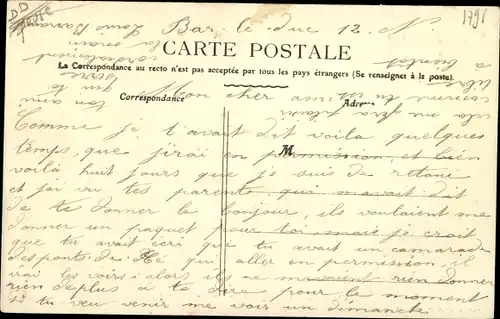 1791
Bar le duc 12 N.
CARTE POSTALE
La Correspondance au recto n'est pas acceptée par tous les pays étrangers (Se renseigner à la poste).
Correspondance
Adresse
M
Mon cher ami
Comme je t'avait dit voila quelques
temps, que j'irai en permission, et bien
voilà huit jours que je suis de retour
et jai vu tes parents qui mavait dit
de te donner le bonjour, ils voulaient me
donner un paquet pour toi mais je crait
que tu avait écri que tu avait un camarade
des ponts de Ké qui aller en permission, il
irai les voirs alors ils ne mavaient rien donner
rien deplus à te dire pour le moment
si tu veu venir me voir un dimanche
cela me fera plaisir
ton ami
qui te serre
cordialement
la main
Louis
à bientot